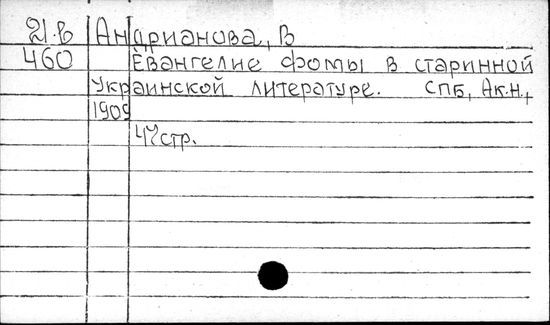 21.в Андрианова, В
460 Евангелие фомы в старинной
украинской литературе. СПБ, Ак.н.,
1909
47 стр.